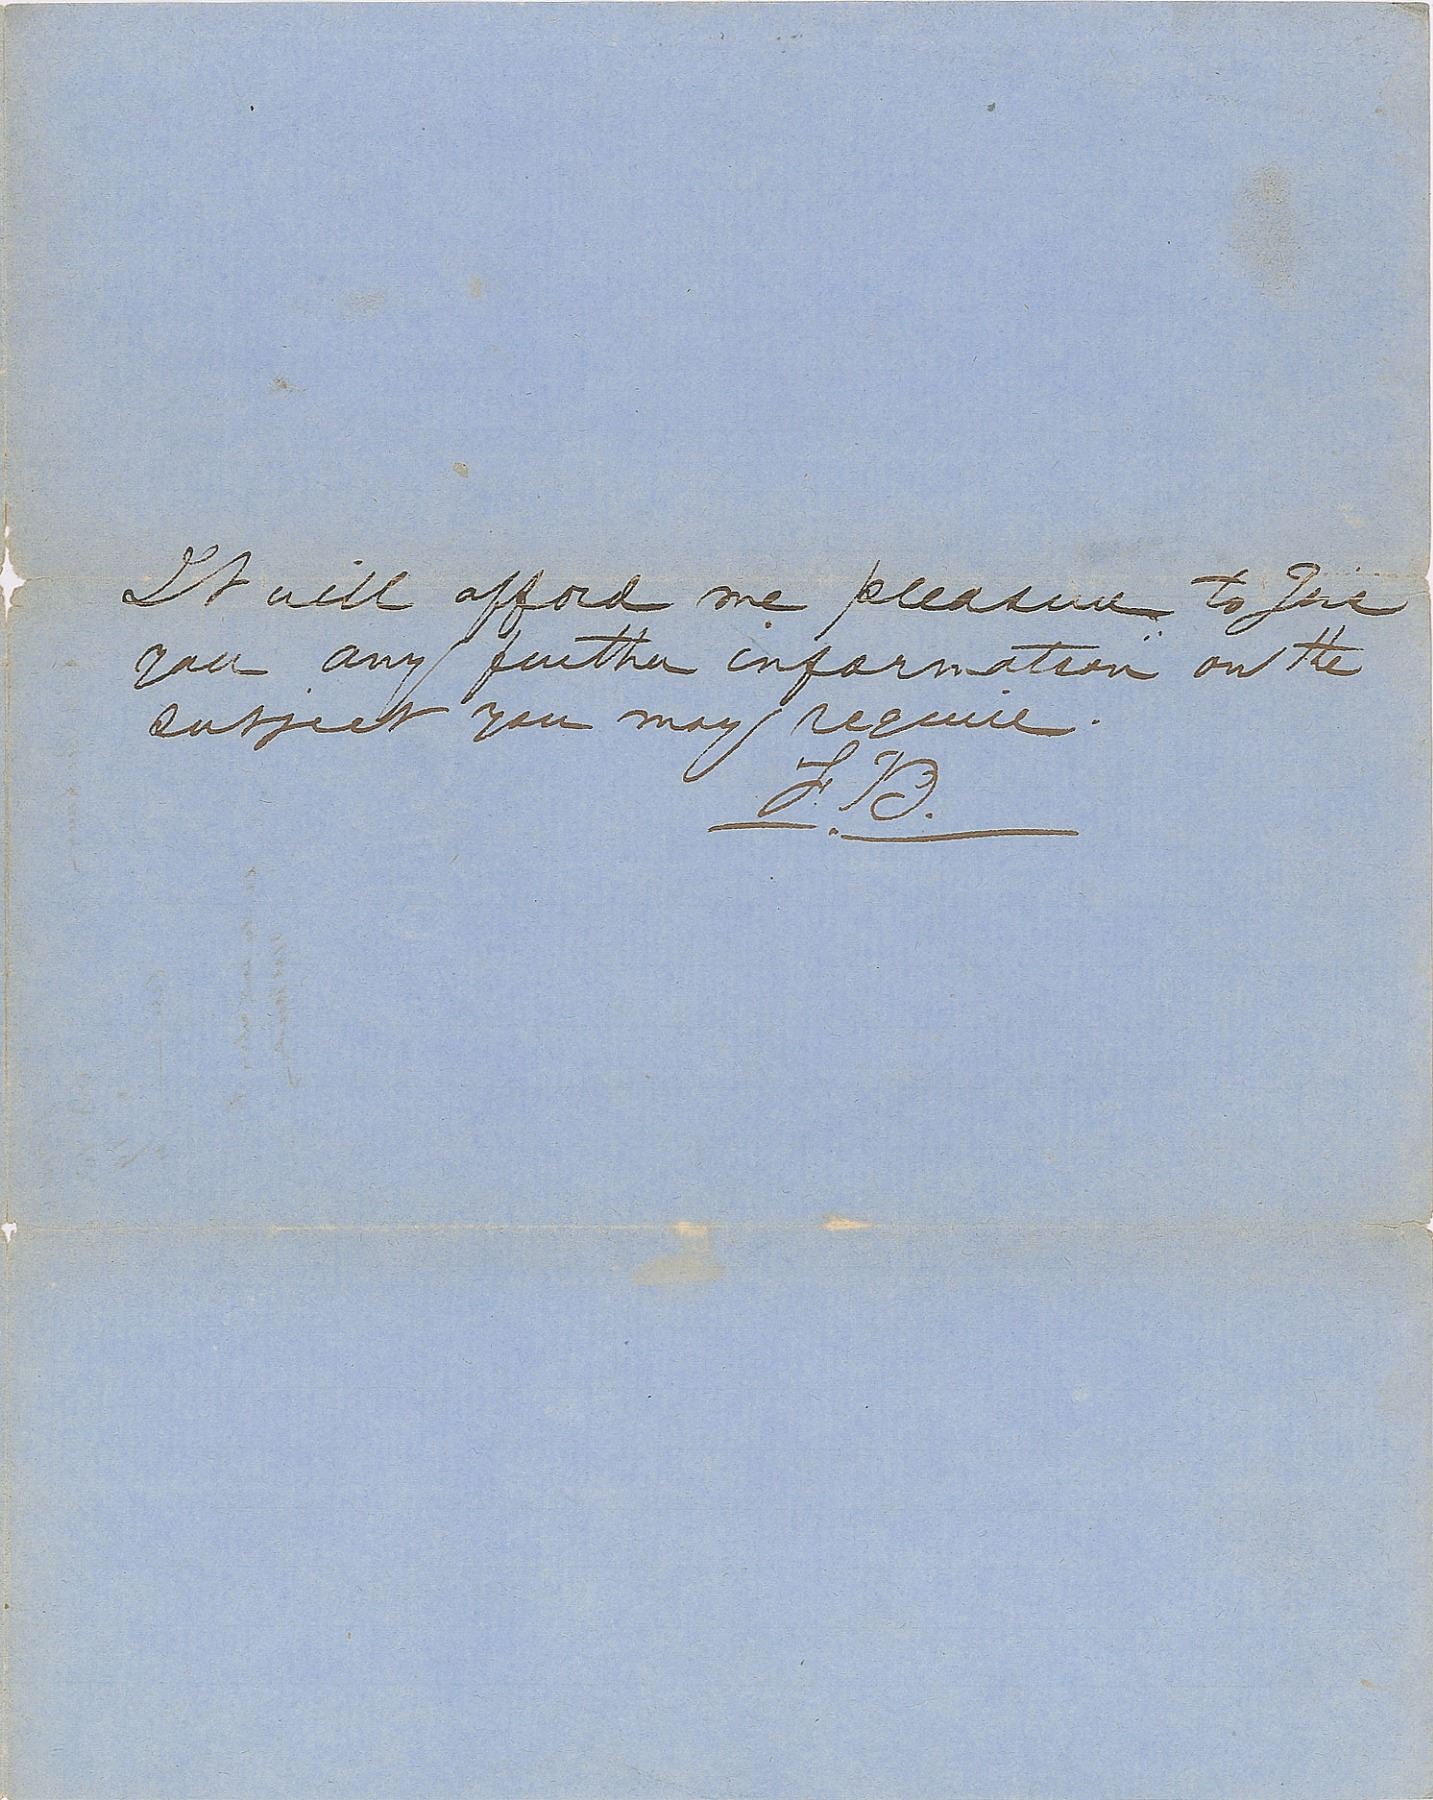 It will afford me pleasure to Give
you any further information on the
subject you may require.
F. B.